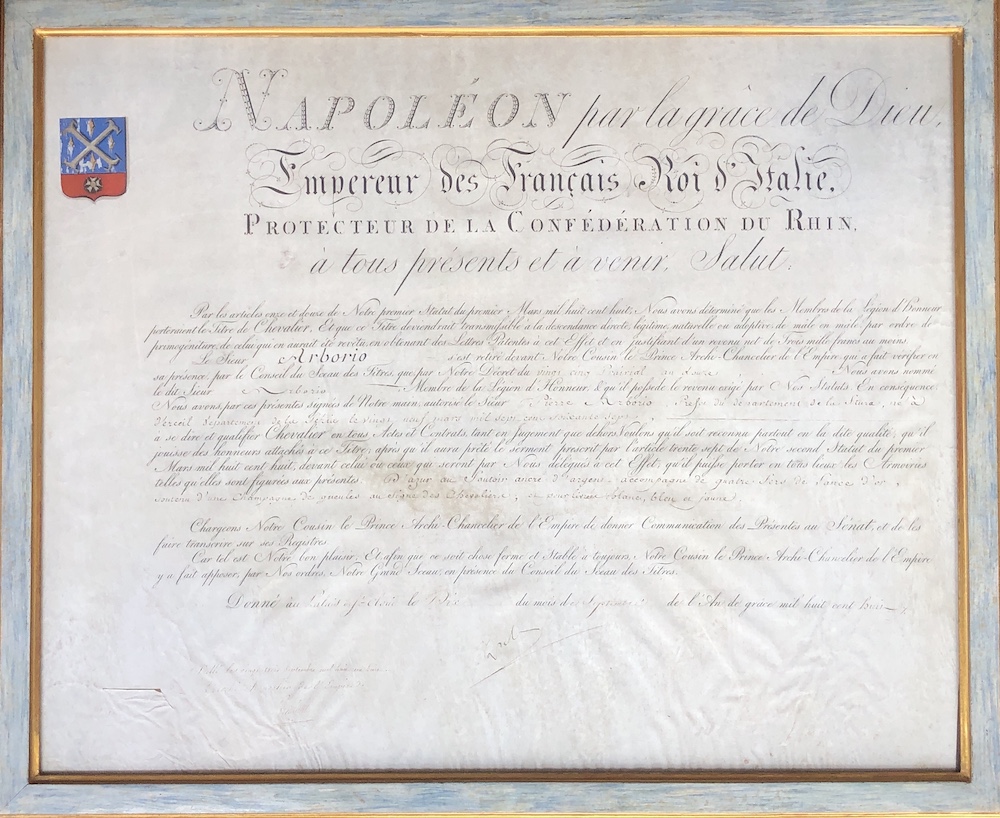 NAPOLÉON par la grâce de Dieu,
Empereur des Français Roi d'Italie,
PROTECTEUR DE LA CONFÉDÉRATION DU RHIN,
à tous présents et à venir, Salut.
Par les articles onze et douze de Notre premier Statut du premier Mars mil huit cent huit, Nous avons déterminé que les Membres de la Légion d'Honneur
porteraient le Titre de Chevalier, Et que ce Titre deviendrait transmissible à la descendance directe, légitime, naturelle ou adoptive, de mâle en mâle, par ordre de
primogéniture, de celui qui en aurait été revêtu, en obtenant des Lettres Patentes à cet Effet et en justifiant d'un revenu net de Trois mille francs au moins
Le Sieur Arborio s'est retiré devant Notre Cousin le Prince Archi-Chancelier de l'Empire qui a fait vérifier en
sa présence, par le Conseil du Sceau des Titres, que par Notre Décret du vingt cinq Prairial an douze Nous avons nommé
le dit Sieur Arborio Membre de la Légion d'Honneur, & qu'il possède le revenu exigé par Nos Statuts En conséquence,
Nous avons, par ces présentes signées de Notre main, autorisé le Sieur Pierre Arborio Préfet du département de la Stura, né à
département de la le vingt neuf mars mil sept cent soixante sept
à se dire et qualifier Chevalier en tous Actes et Contrats, tant en Jugement que dehors Voulons qu'il soit reconnu partout en la dite qualité, qu'il
jouisse des honneurs attachés à ce Titre, après qu'il aura prêté le serment prescrit par l'article trente sept de Notre second Statut du premier
Mars mil huit cent huit, devant celui ou ceux qui seront par Nous délégués à cet Effet, qu'il puisse porter en tous lieux les Armoiries
telles qu'elles sont figurées aux présentes. D'azur au Sautoir ancré d'argent accompagné de quatre fers de lance d'or,
soutenu d'une Champagne de gueules au Signe des Chevaliers, et pour livrée bleu et jaune.
Chargeons Notre Cousin le Prince Archi-Chancelier de l'Empire de donner Communication des Présentes au Sénat, et de les
faire transcrire sur ses Registres
Car tel est Notre bon plaisir; Et afin que ce soit chose ferme et Stable à toujours, Notre Cousin le Prince Archi-Chancelier de l'Empire
y a fait apposer, par Nos ordres, Notre Grand Sceau, en présence du Conseil du Sceau des Titres.
Donné au Palais de St Cloud le Dix du mois de Septembre de l'An de grâce mil huit cent huit